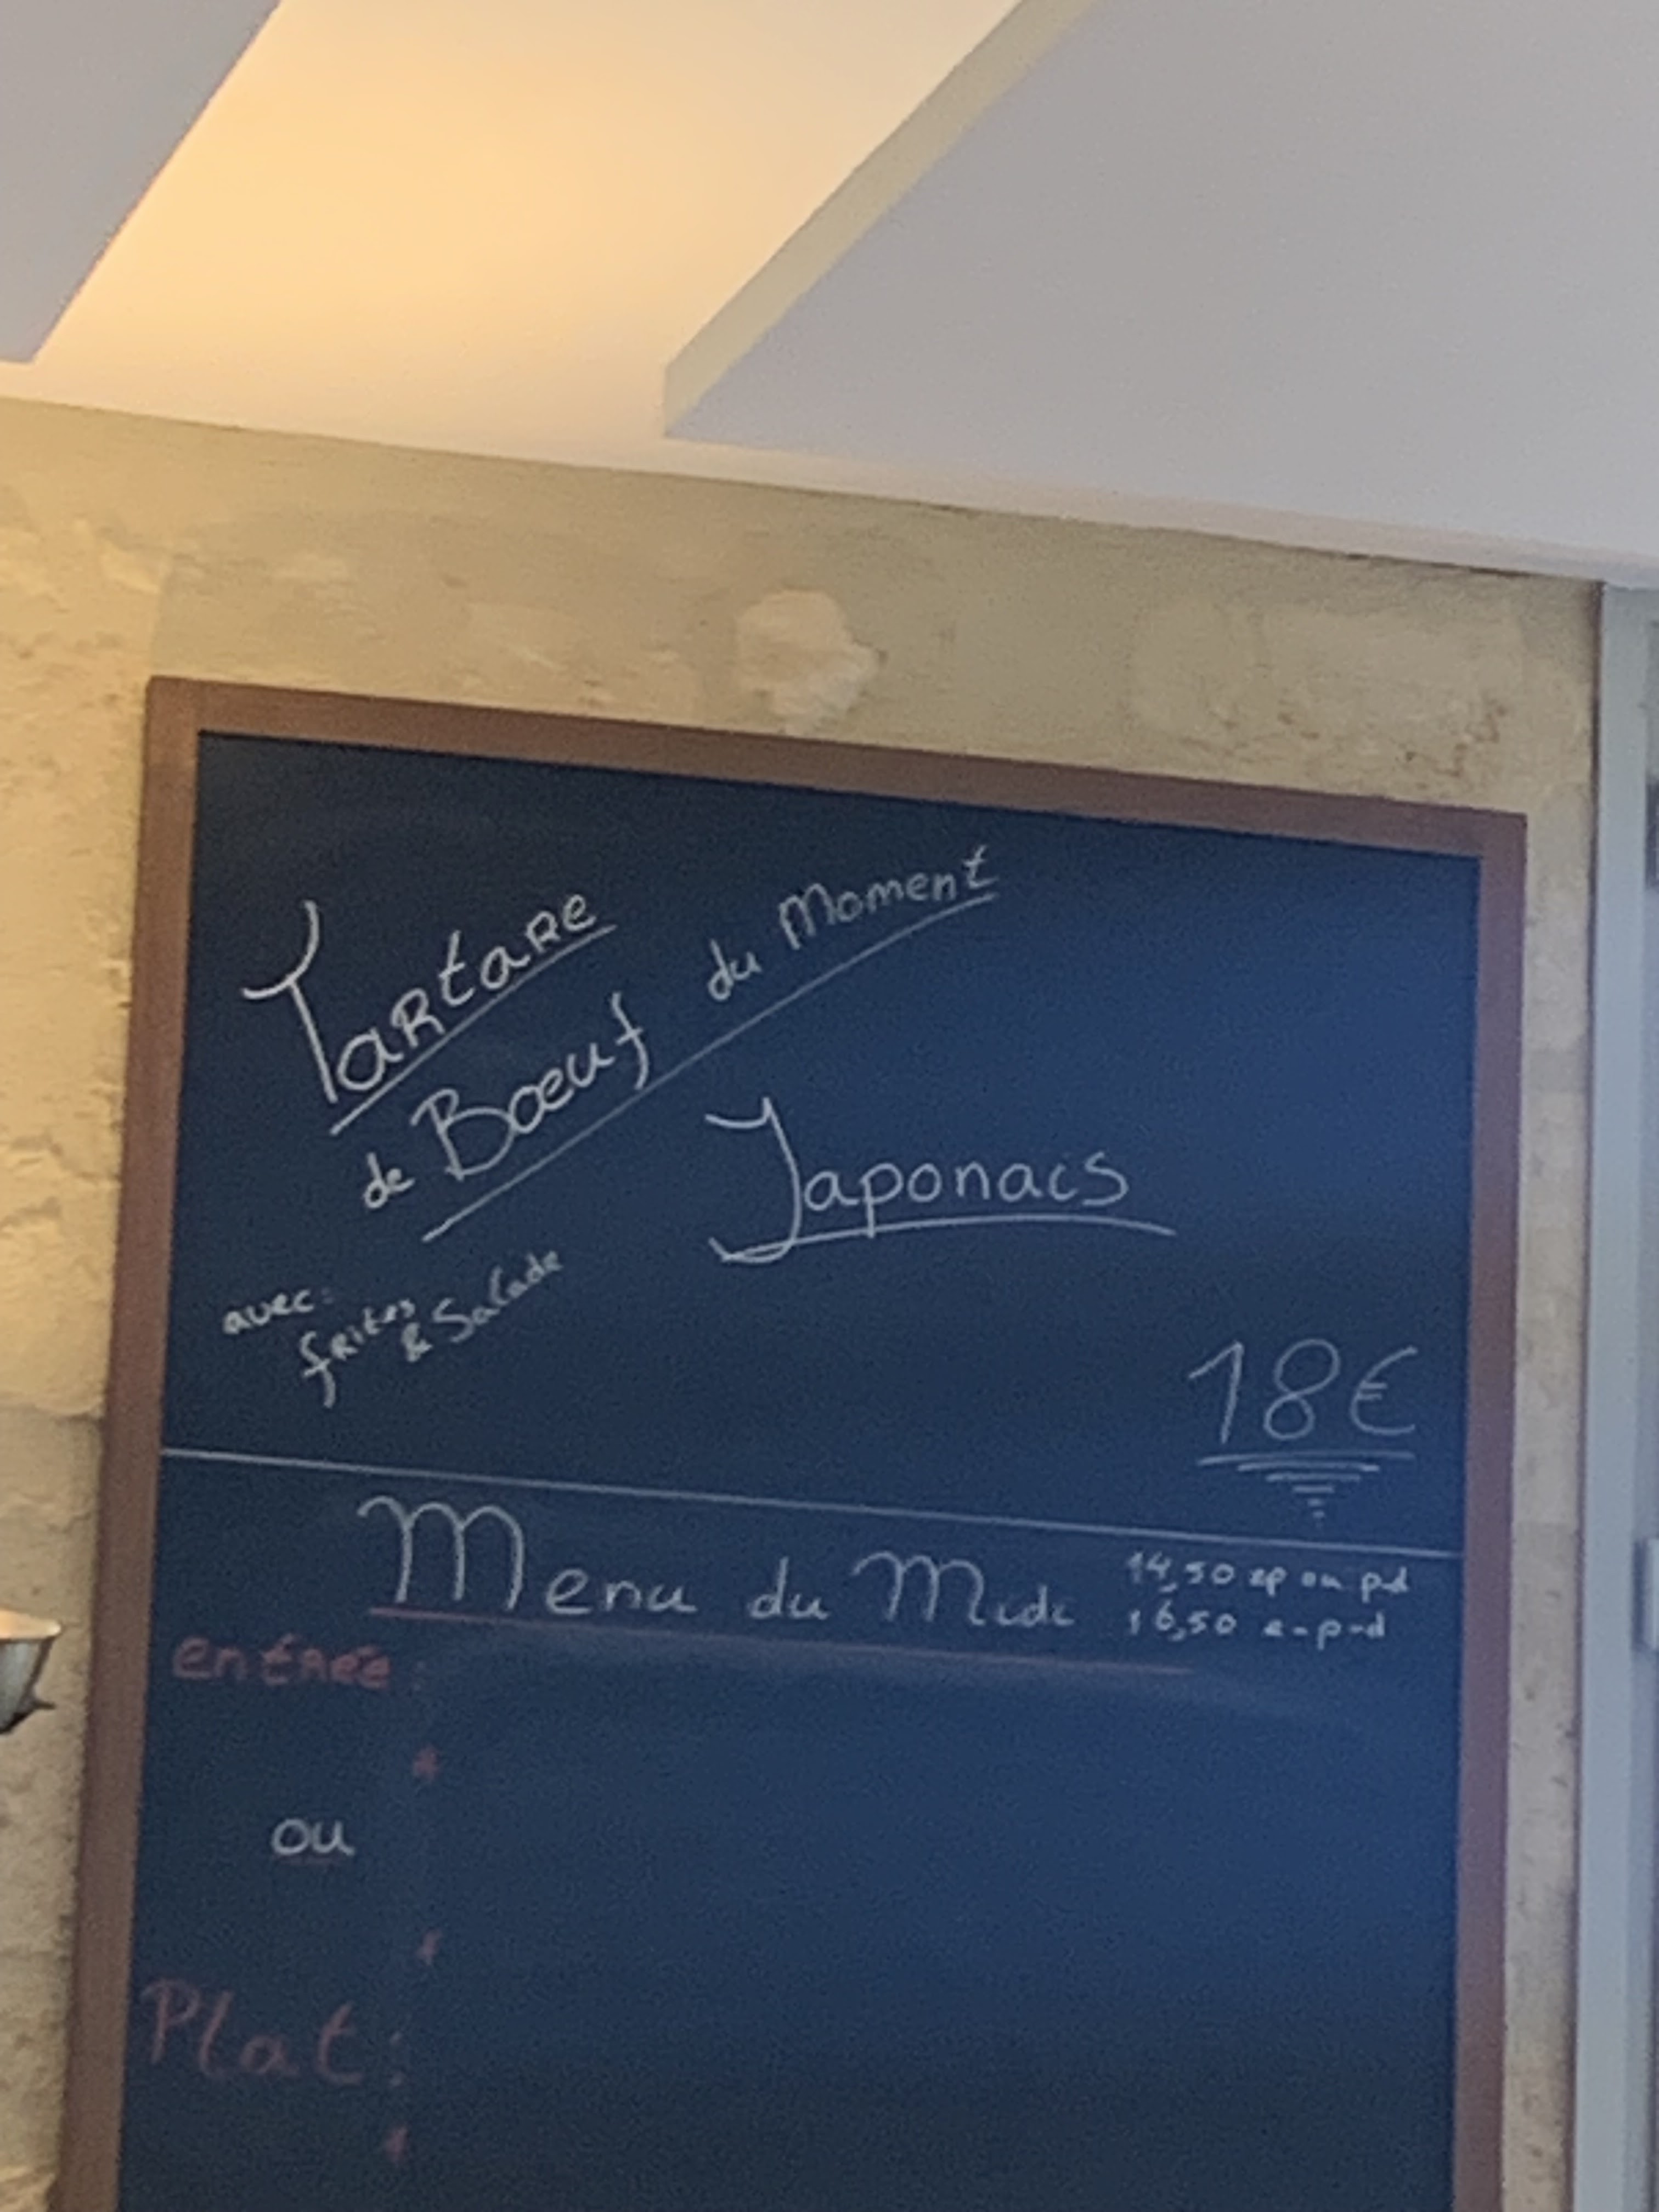 Tartare
de Bœuf du Moment
Japonais
avec:
frites
& Salade
18€
Menu du Midi
14,50 ep ou pd
16,50 e-p-d
entrée:
*
ou
*
Plat:
*